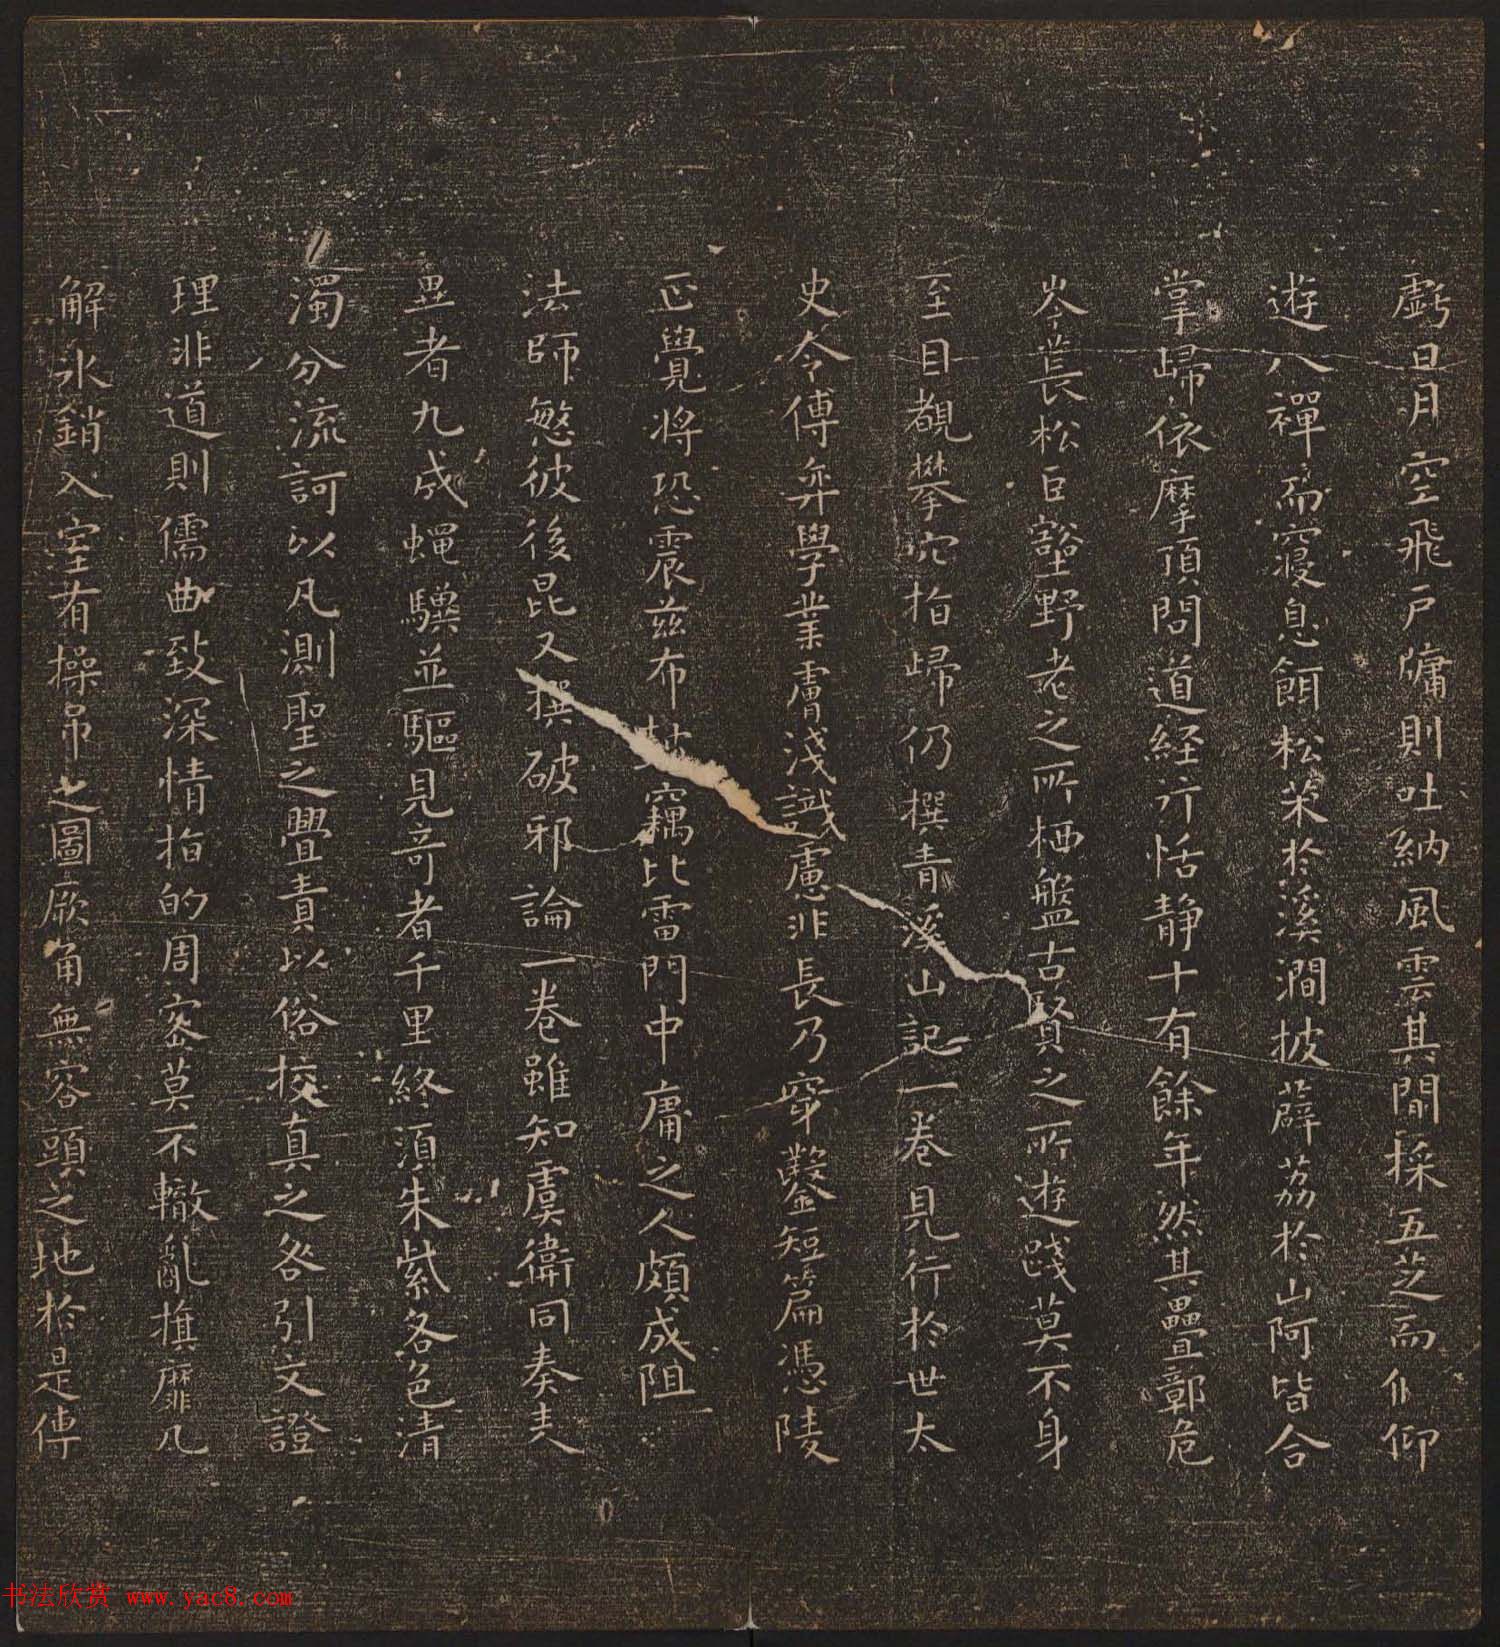 虧日月空飛戶牖則吐納風雲其間採五芝而偃仰
遊八禪而寢息餌松茱於溪澗披薜荔於山阿皆合
掌歸依摩頂問道經行恬靜十有餘年然其疊鄣危
岑萇松巨壑野老之所栖盤古賢之所遊踐莫不身
至目覩攀穴指歸仍撰青溪山記一卷見行於世太
史令傅弈學業膚淺識慮非長乃穿鑿短篇憑陵
正覺將恐震茲布鼓竊比雷門中庸之人頗成阻
法師愍彼後昆又撰破邪論一卷雖知虞衛同奏表
異者九成蠅驥並驅見奇者千里終須朱紫各色清
濁分流訶以凡測聖之舋責以俗挍真之咎引文證
理非道則儒曲致深情指的周密莫不轍亂旗靡凡
解氷銷入室有操吊之圖厥角無容頭之地於是傳
书法欣赏 www.yac8.com